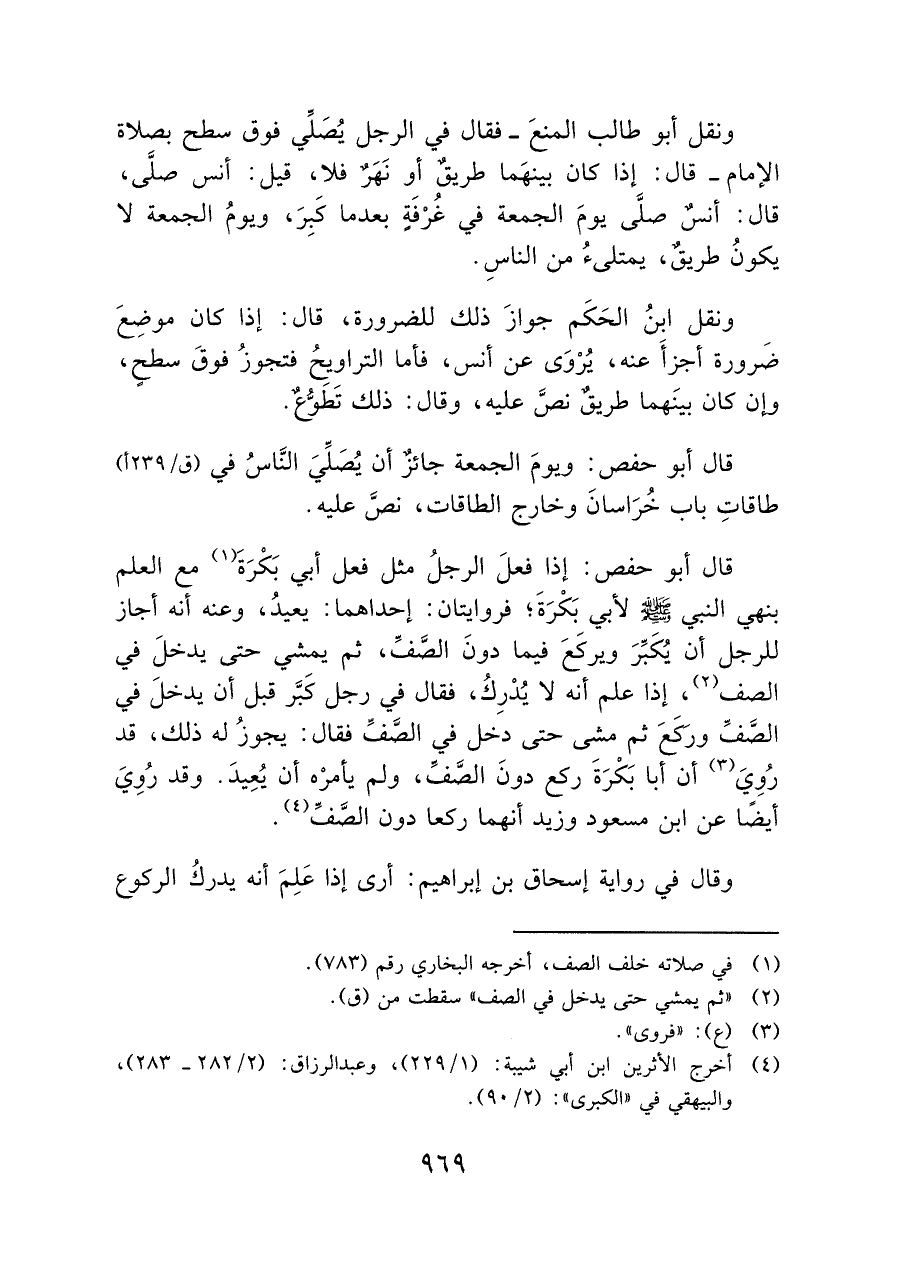 ونقل أبو طالب المنعَ ـ فقال في الرجل يُصَلِّي فوق سطح بصلاة
الإمام ـ قال: إذا كان بينهَما طريقٌ أو نَهَرٌ فلا، قيل: أنس صلَّى،
قال: أنسٌ صلَّى يومَ الجمعة في غُرْفَةٍ بعدما كَبِرَ، ويومُ الجمعة لا
يكونُ طريقٌ، يمتلىءُ من الناسِ.
ونقل ابنُ الحَكَم جوازَ ذلك للضرورة، قال: إذا كان موضِعَ
ضَرورة أجزأَ عنه، يُرْوَى عن أنس، فأما التراويحُ فتجوزُ فوقَ سطحٍ،
وإن كان بينَهما طريقٌ نصَّ عليه، وقال: ذلك تَطَوُّعٌ.
قال أبو حفص: ويومَ الجمعة جائزٌ أن يُصَلِّيَ النَّاسُ في (ق/٢٣٩أ)
طاقاتِ باب خُرَاسانَ وخارج الطاقات، نصَّ عليه.
قال أبو حفص: إذا فعلَ الرجلُ مثل فعل أبي بَكْرَةَ(١) مع العلم
بنهي النبي ﷺ لأبي بَكْرَةَ؛ فروايتان: إحداهما: يعيدُ، وعنه أنه أجاز
للرجل أن يُكَبِّرَ ويركَعَ فيما دونَ الصَّفِّ، ثم يمشي حتى يدخلَ في
الصف(٢)، إذا علم أنه لا يُدْرِكُ، فقال في رجل كَبَّر قبل أن يدخلَ في
الصَّفِّ وركَعَ ثم مشى حتى دخل في الصَّفِّ فقال: يجوزُ له ذلك، قد
رُوِيَ(٣) أن أبا بَكْرَةَ ركع دونَ الصَّفِّ، ولم يأمرْه أن يُعِيدَ. وقد رُوِيَ
أيضًا عن ابن مسعود وزيد أنهما ركعا دون الصَّفِّ(٤).
وقال في رواية إسحاق بن إبراهيم: أرى إذا عَلِمَ أنه يدركُ الركوع
(١) في صلاته خلف الصف، أخرجه البخاري رقم (٧٨٣).
(٢) «ثم يمشي حتى يدخل في الصف» سقطت من (ق).
(٣) (ع): «فروى».
(٤) أخرج الأثرين ابن أبي شيبة: (٢٢٩/١)، وعبدالرزاق: (٢٨٢/٢ ـ ٢٨٣)،
والبيهقي في «الكبرى»: (٩٠/٢).
٩٦٩